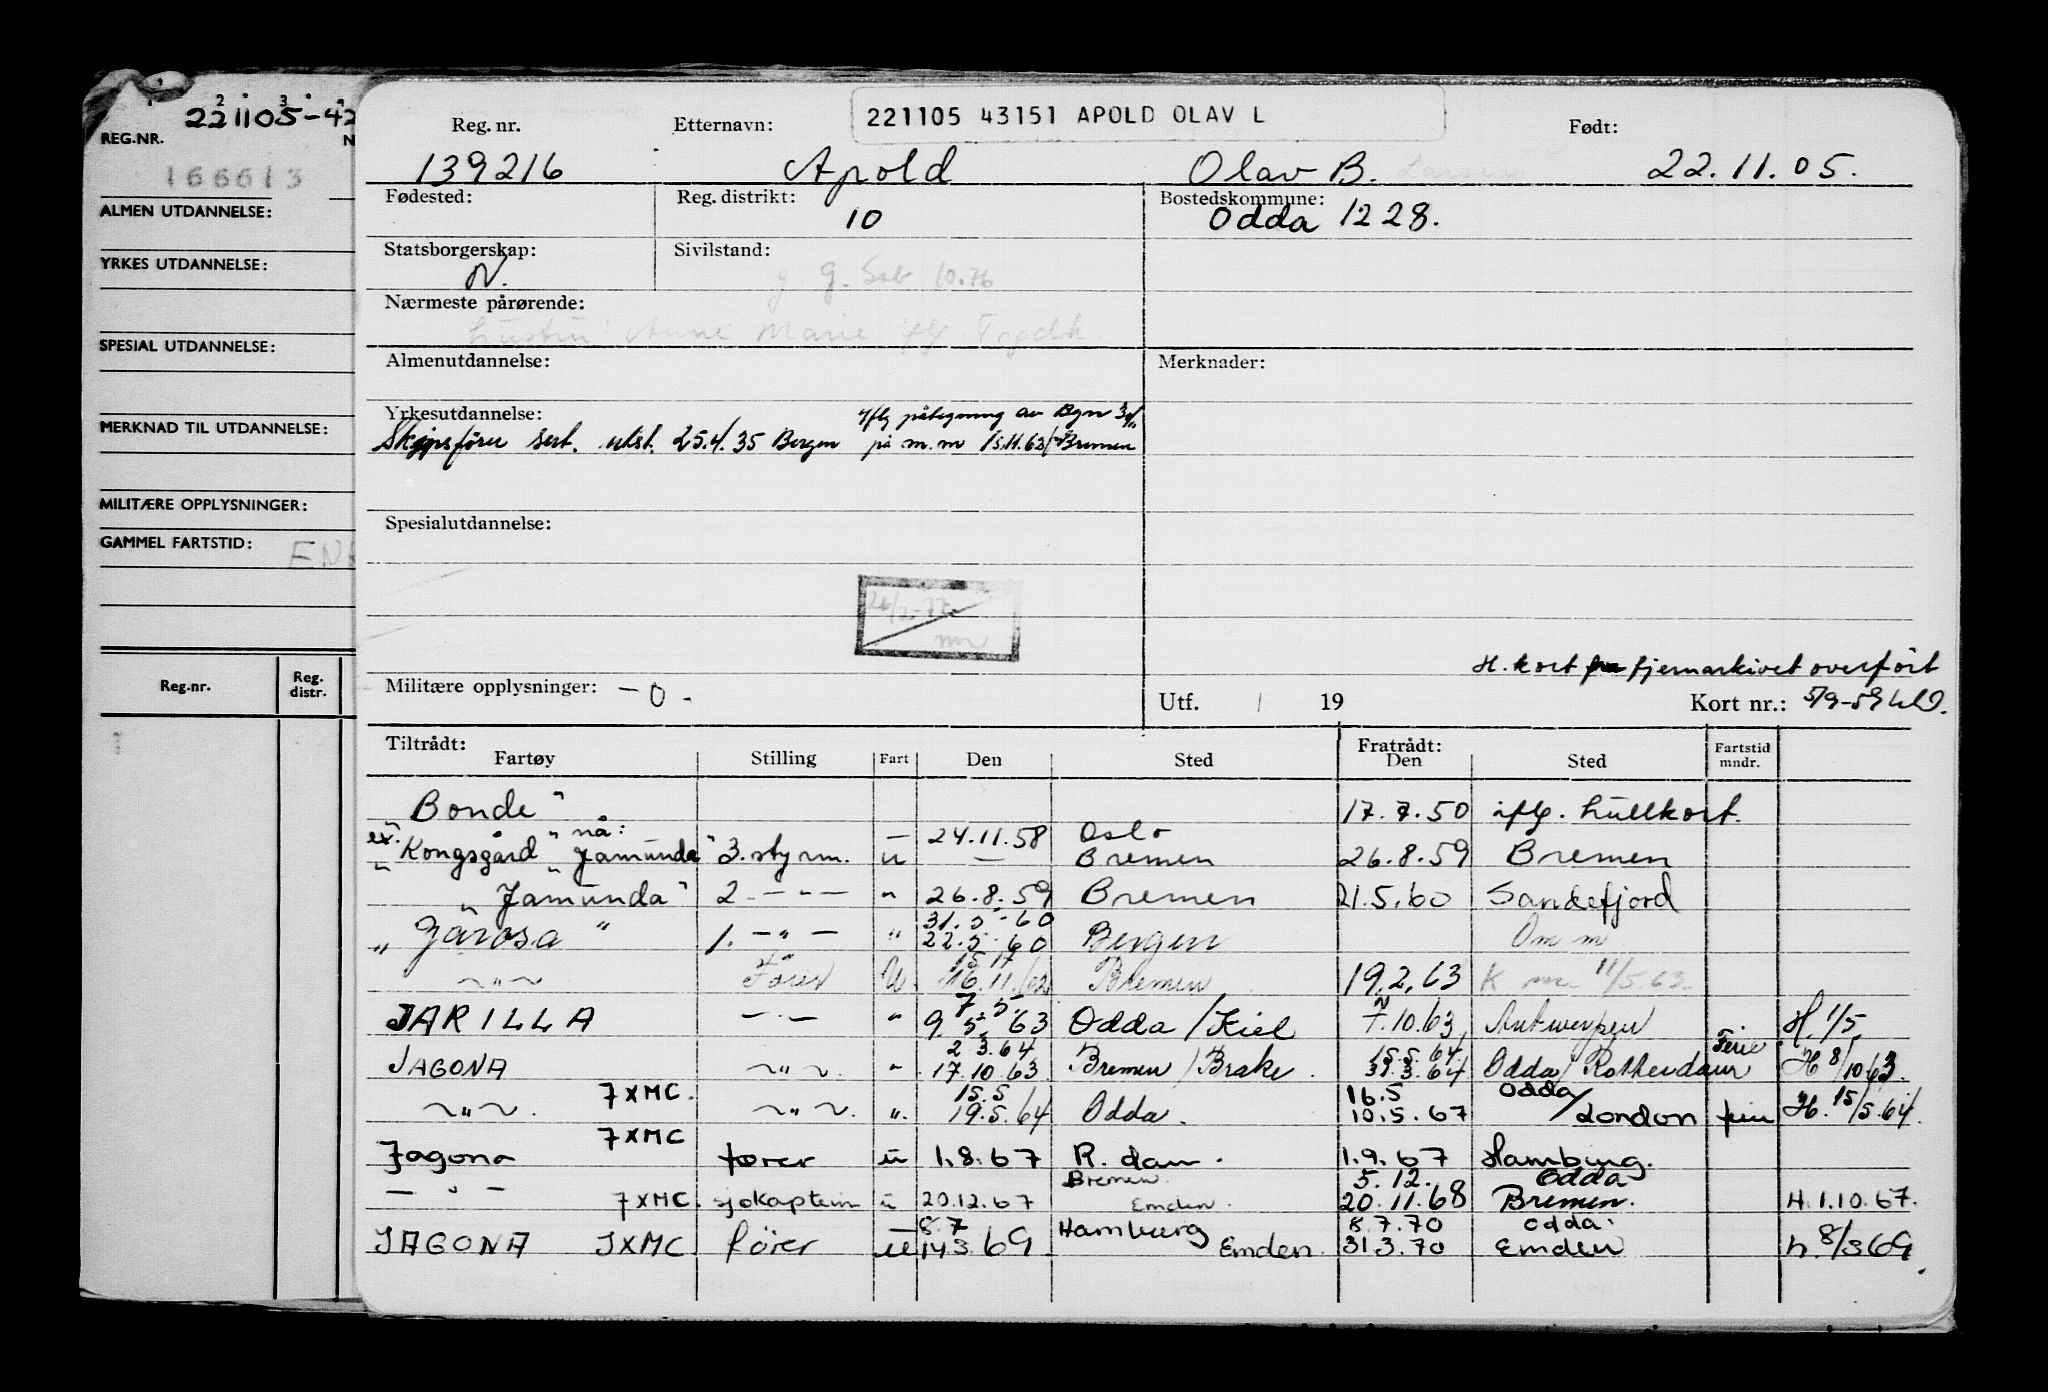 221105-42
REG.NR. N
166613
ALMEN UTDANNELSE:
YRKES UTDANNELSE:
SPESIAL UTDANNELSE:
MERKNAD TIL UTDANNELSE:
MILITÆRE OPPLYSNINGER:
GAMMEL FARTSTID:
Reg.nr. Reg. distr.
221105 43151 APOLD OLAV L
Reg. nr. Etternavn: Født:
139216 Apold Olav B. 22.11.05.
Fødested: Reg. distrikt: Bostedskommune:
10 Odda 1228.
Statsborgerskap: Sivilstand:
N. g. 10.76
Nærmeste pårørende:
hustru Anne Marie
Almenutdannelse: Merknader:
Yrkesutdannelse: iflg påtegning av Bgn
Skipsfører sert. utst. 25.4.35 Bergen på m.m 15.11.62 Bremen
Spesialutdannelse:
H. kort fjernarkivet overført
Militære opplysninger: - 0 - Utf. / 19 Kort nr.: 5/9-59
Tiltrådt: Fratrådt: Fartstid
Fartøy Stilling Fart Den Sted Den Sted mndr.
Bonde" 17.7.50 iflg. hullkort.
ex. nå: — 24.11.58 Oslo
"Kongsgård" "Jamunda" 3. styrm. u — Bremen 26.8.59 Bremen
"Jamunda" 2 — " — " 26.8.59 Bremen 21.5.60 Sandefjord
31.5-60
"Jarosa" 1. — " — " 22.5 60 Bergen Om m
15 17
~ " ~ Fører U 16.11/62 Bremen 19.2.63 K 11/5.63.
7 5
JARILLA — " — " 9. 5 63 Odda / Kiel 7.10.63 Antwerpen H. 1/5
2.3.64 15.5.64 Ferie
JAGONA ~ " ~ " 17.10.63 Bremen / Brake 31.3.64 Odda / Rotterdam H 8/10 63.
JXMC. 15.5 16.5 Odda/
~ " ~. ~ " ~. ". 19.5.64 Odda. 10.5.67 London H. 15/5.64.
JXMC
Jagona fører u 1.8.67 R. dam. 1.9.67 Hamburg.
Bremen. 5.12. Odda
— " — JXMC. sjøkaptein u 20.12.67 Emden. 20.11.68 Bremen. H. 1.10.67.
8.7 Hamburg 8.7.70 Odda.
JAGONA JXMC fører u 14 3 69 Emden. 31.3.70 Emden h. 8/3 69.